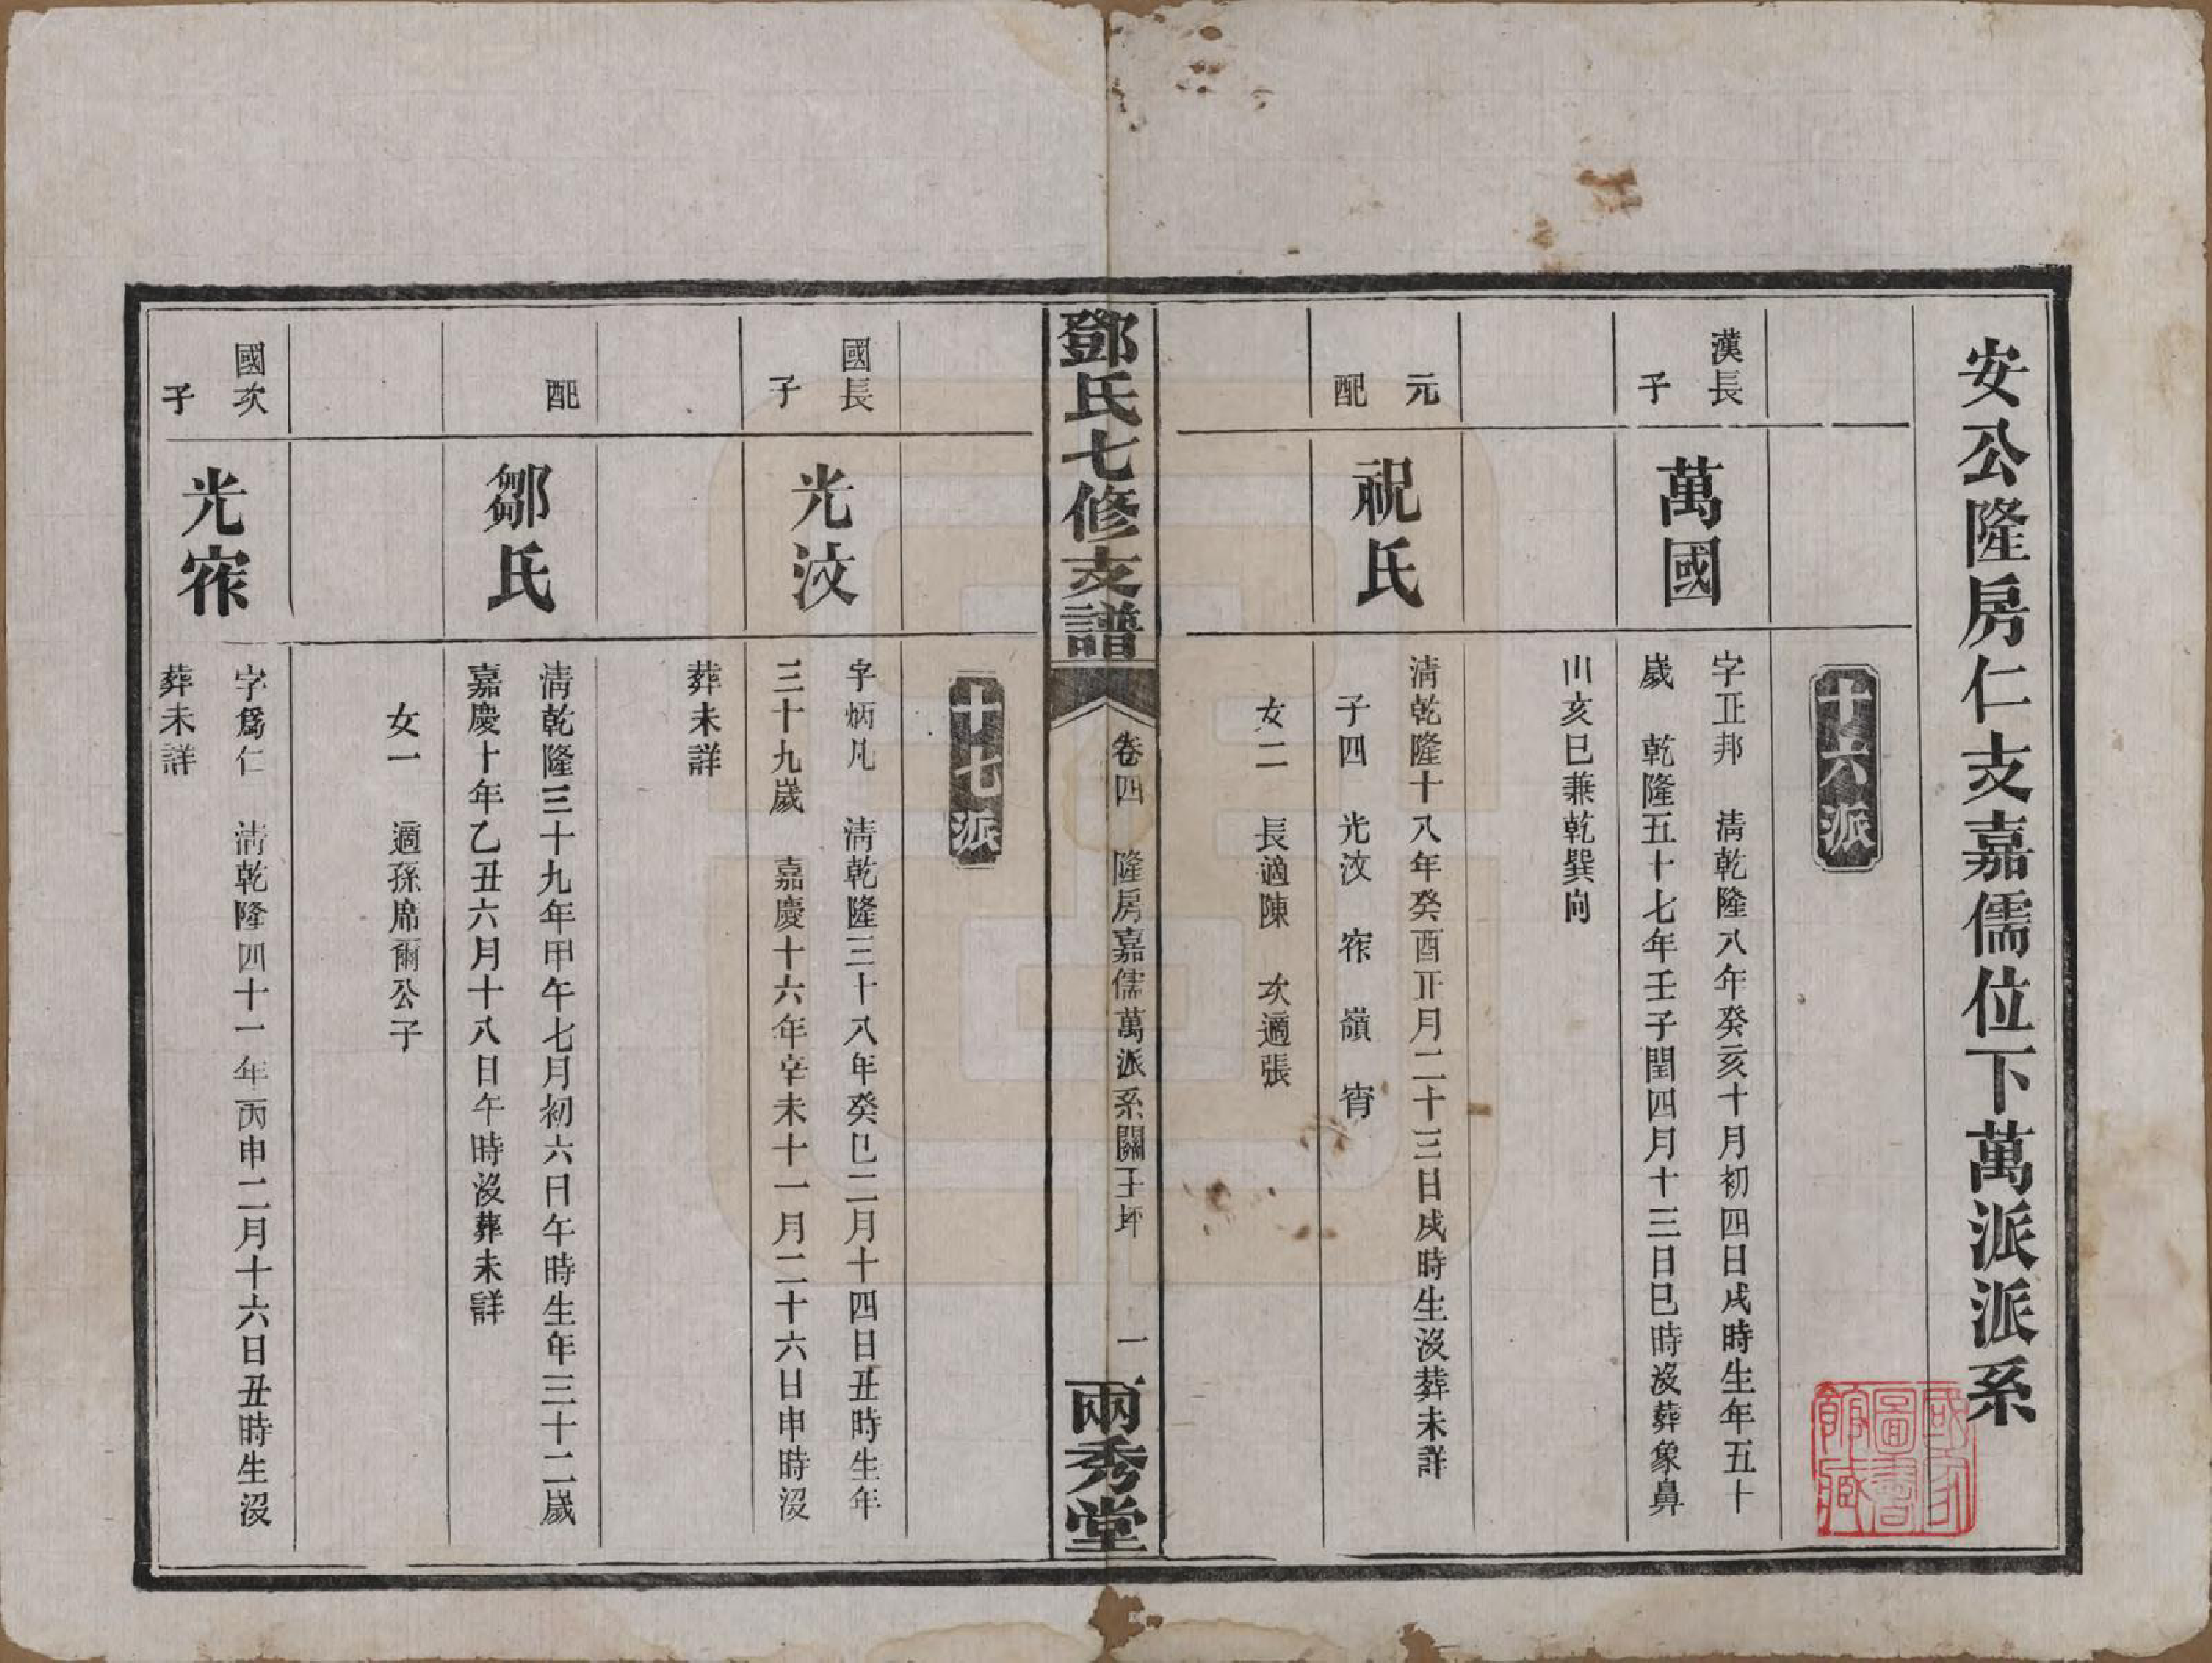 安公隆房仁支嘉儒位下萬派派系
十六派
漢長
子
萬國
字正邦　清乾隆八年癸亥十月初四日戌時生年五十
歲　乾隆五十七年壬子閏四月十三日巳時沒葬象鼻
山亥巳兼乾巽向
元
配
祝氏
清乾隆十八年癸酉正月二十三日戌時生沒葬未詳
子四　光汶　㝾　嶺　宵
女二　長適陳　次適張
鄧氏七修支譜
卷四　隆房嘉儒萬派系關王坪
一
兩秀堂
十七派
國長
子
光汶
字炳凡　清乾隆三十八年癸巳二月十四日丑時生年
三十九歲　嘉慶十六年辛未十一月二十六日申時沒
葬未詳
配
鄒氏
清乾隆三十九年甲午七月初六日午時生年三十二歲
嘉慶十年乙丑六月十八日午時沒葬未詳
女一　適孫席爾公子
國次
子
光㝾
字爲仁　清乾隆四十一年丙申二月十六日丑時生沒
葬未詳
國家
圖書
館藏